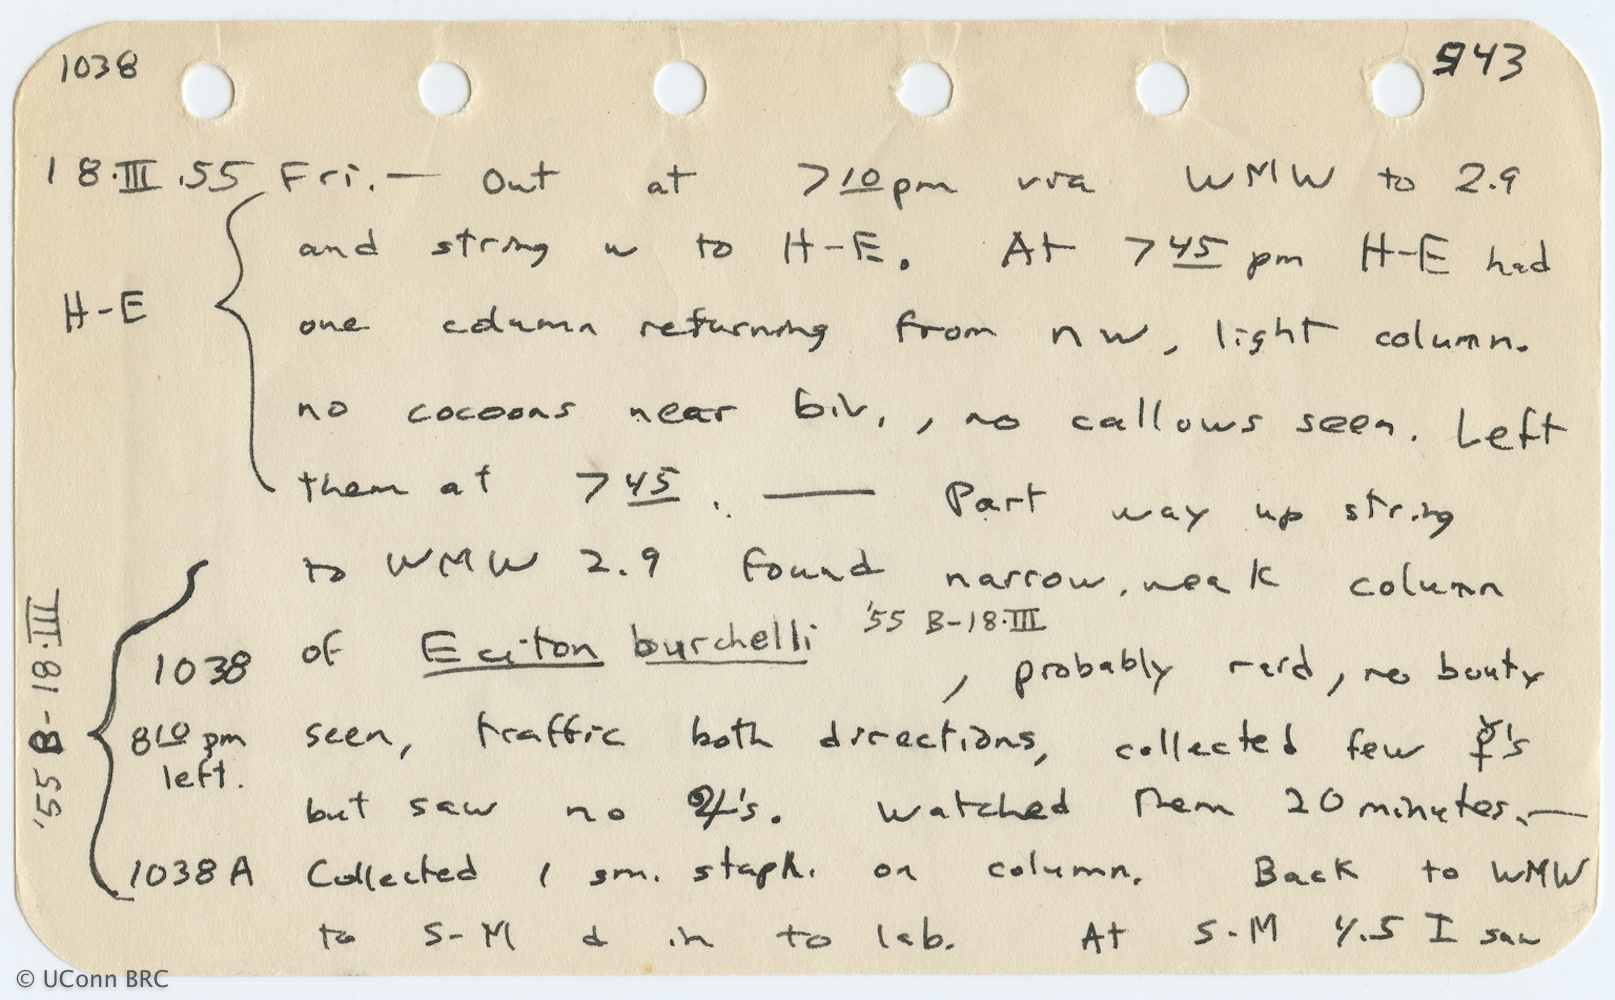 1038
943
18.III.55 Fri. — Out at 7 10 pm via WMW to 2.9
and string w to H-E. At 7 45 pm H-E had
H-E
one column returning from nw, light column.
no cocoons near biv., no callows seen. Left
them at 7 45. — Part way up string
to WMW 2.9 found narrow, weak column
'55 B-18.III
of Eciton burchelli '55 B-18.III, probably raid, no booty
1038
8 10 pm left.
seen, traffic both directions, collected few ☿'s
but saw no 's. Watched them 20 minutes. —
1038A Collected 1 sm. staph. on column. Back to WMW
to S-M & in to lab. At S-M 4.5 I saw
© UConn BRC